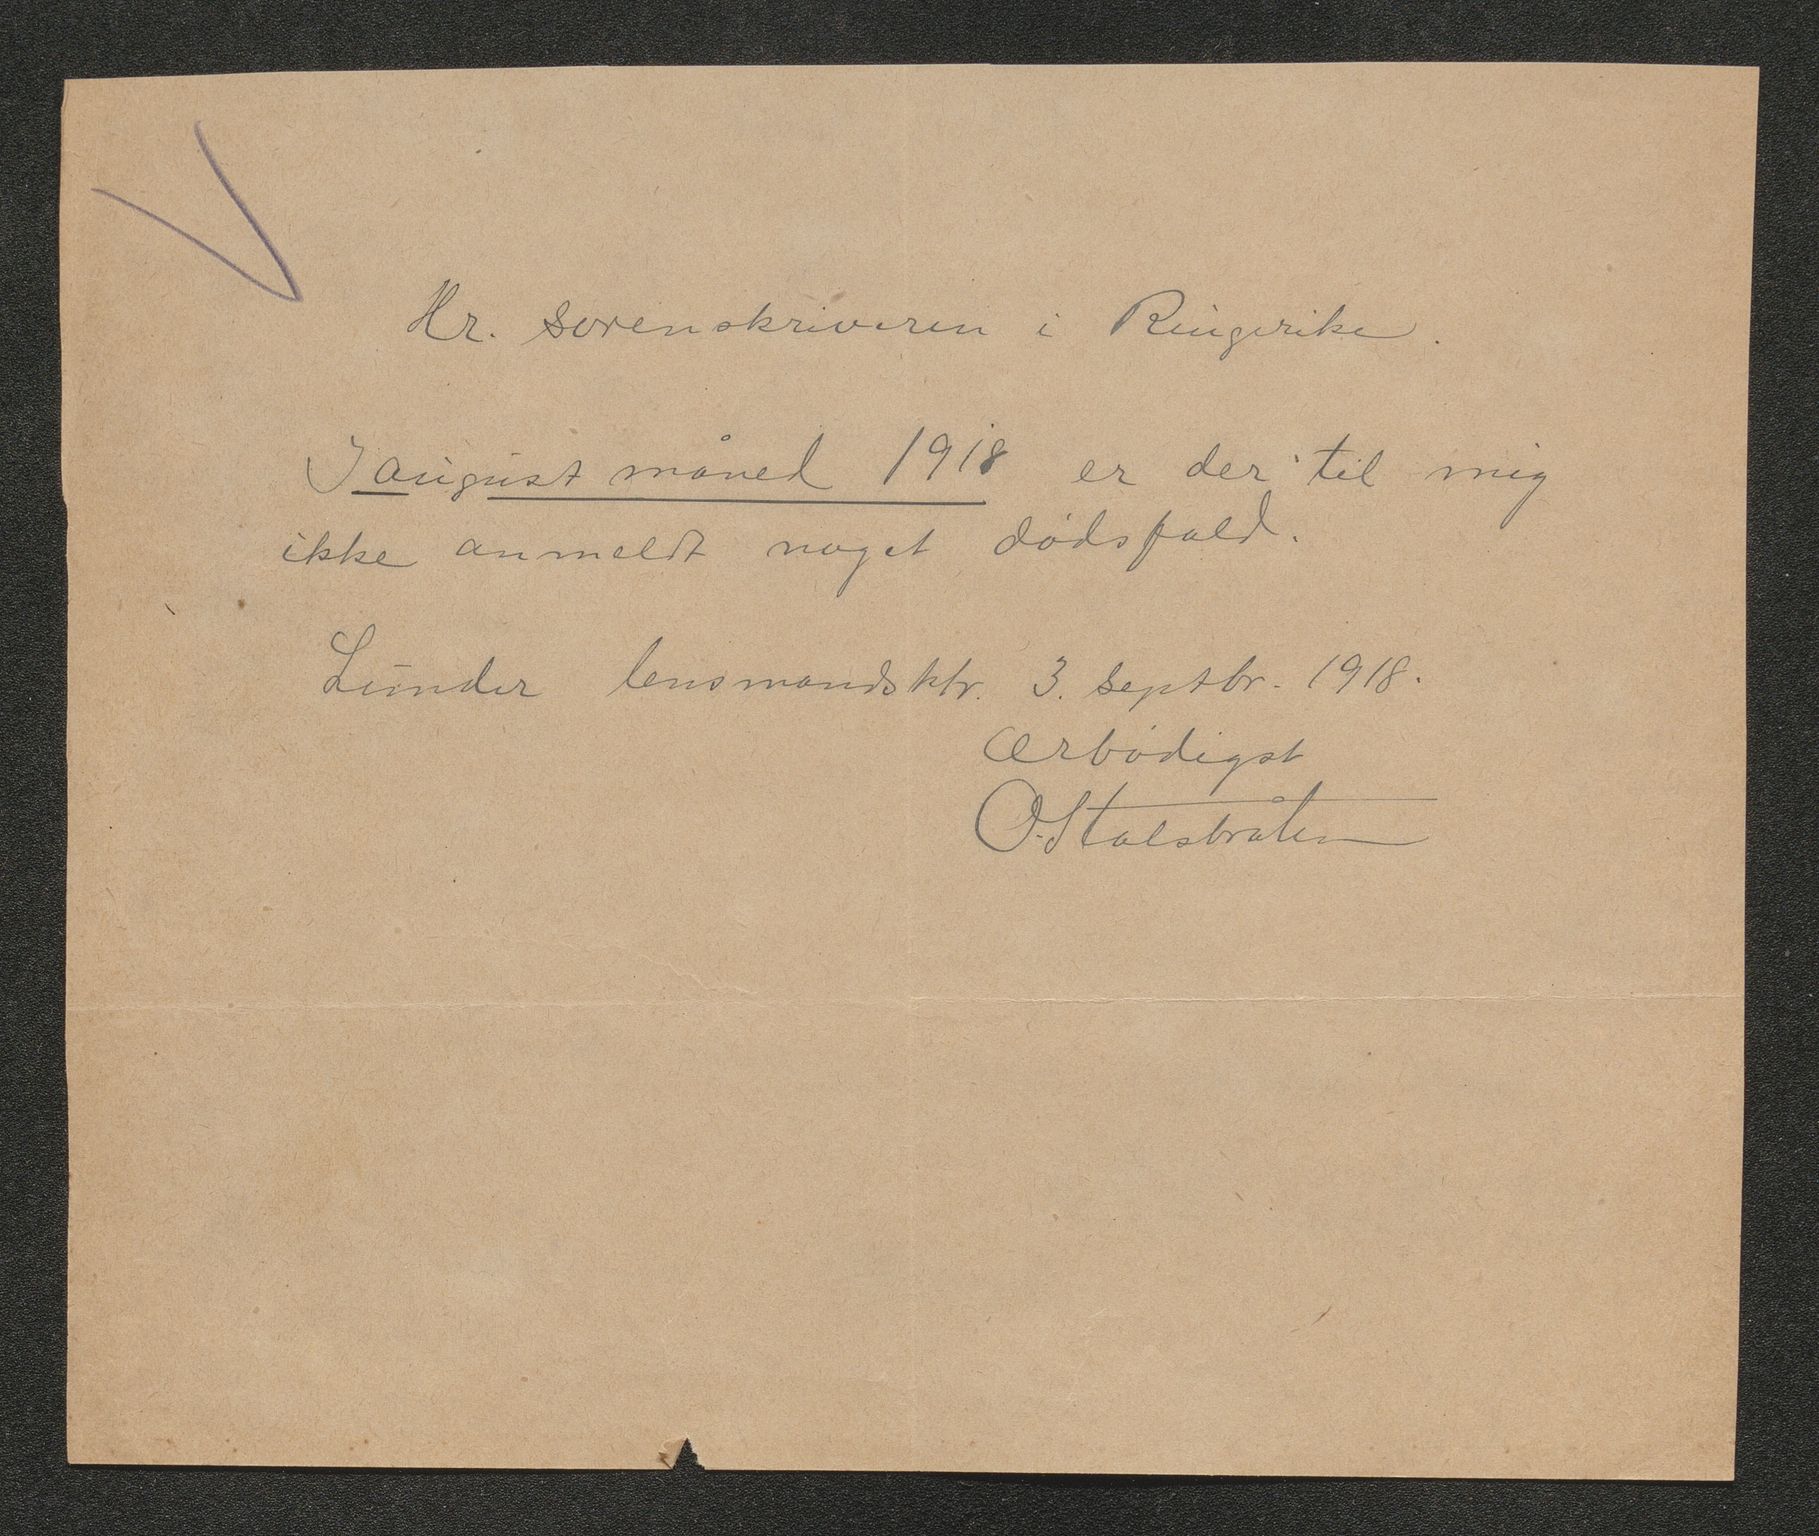 Hr. sorenskriveren i Ringerike.
I august måned 1918 er der til mig
ikke anmeldt noget dødsfald.
Lunder lensmandsktr. 3. septbr. 1918.
Ærbødigst
O. Stalsbråten